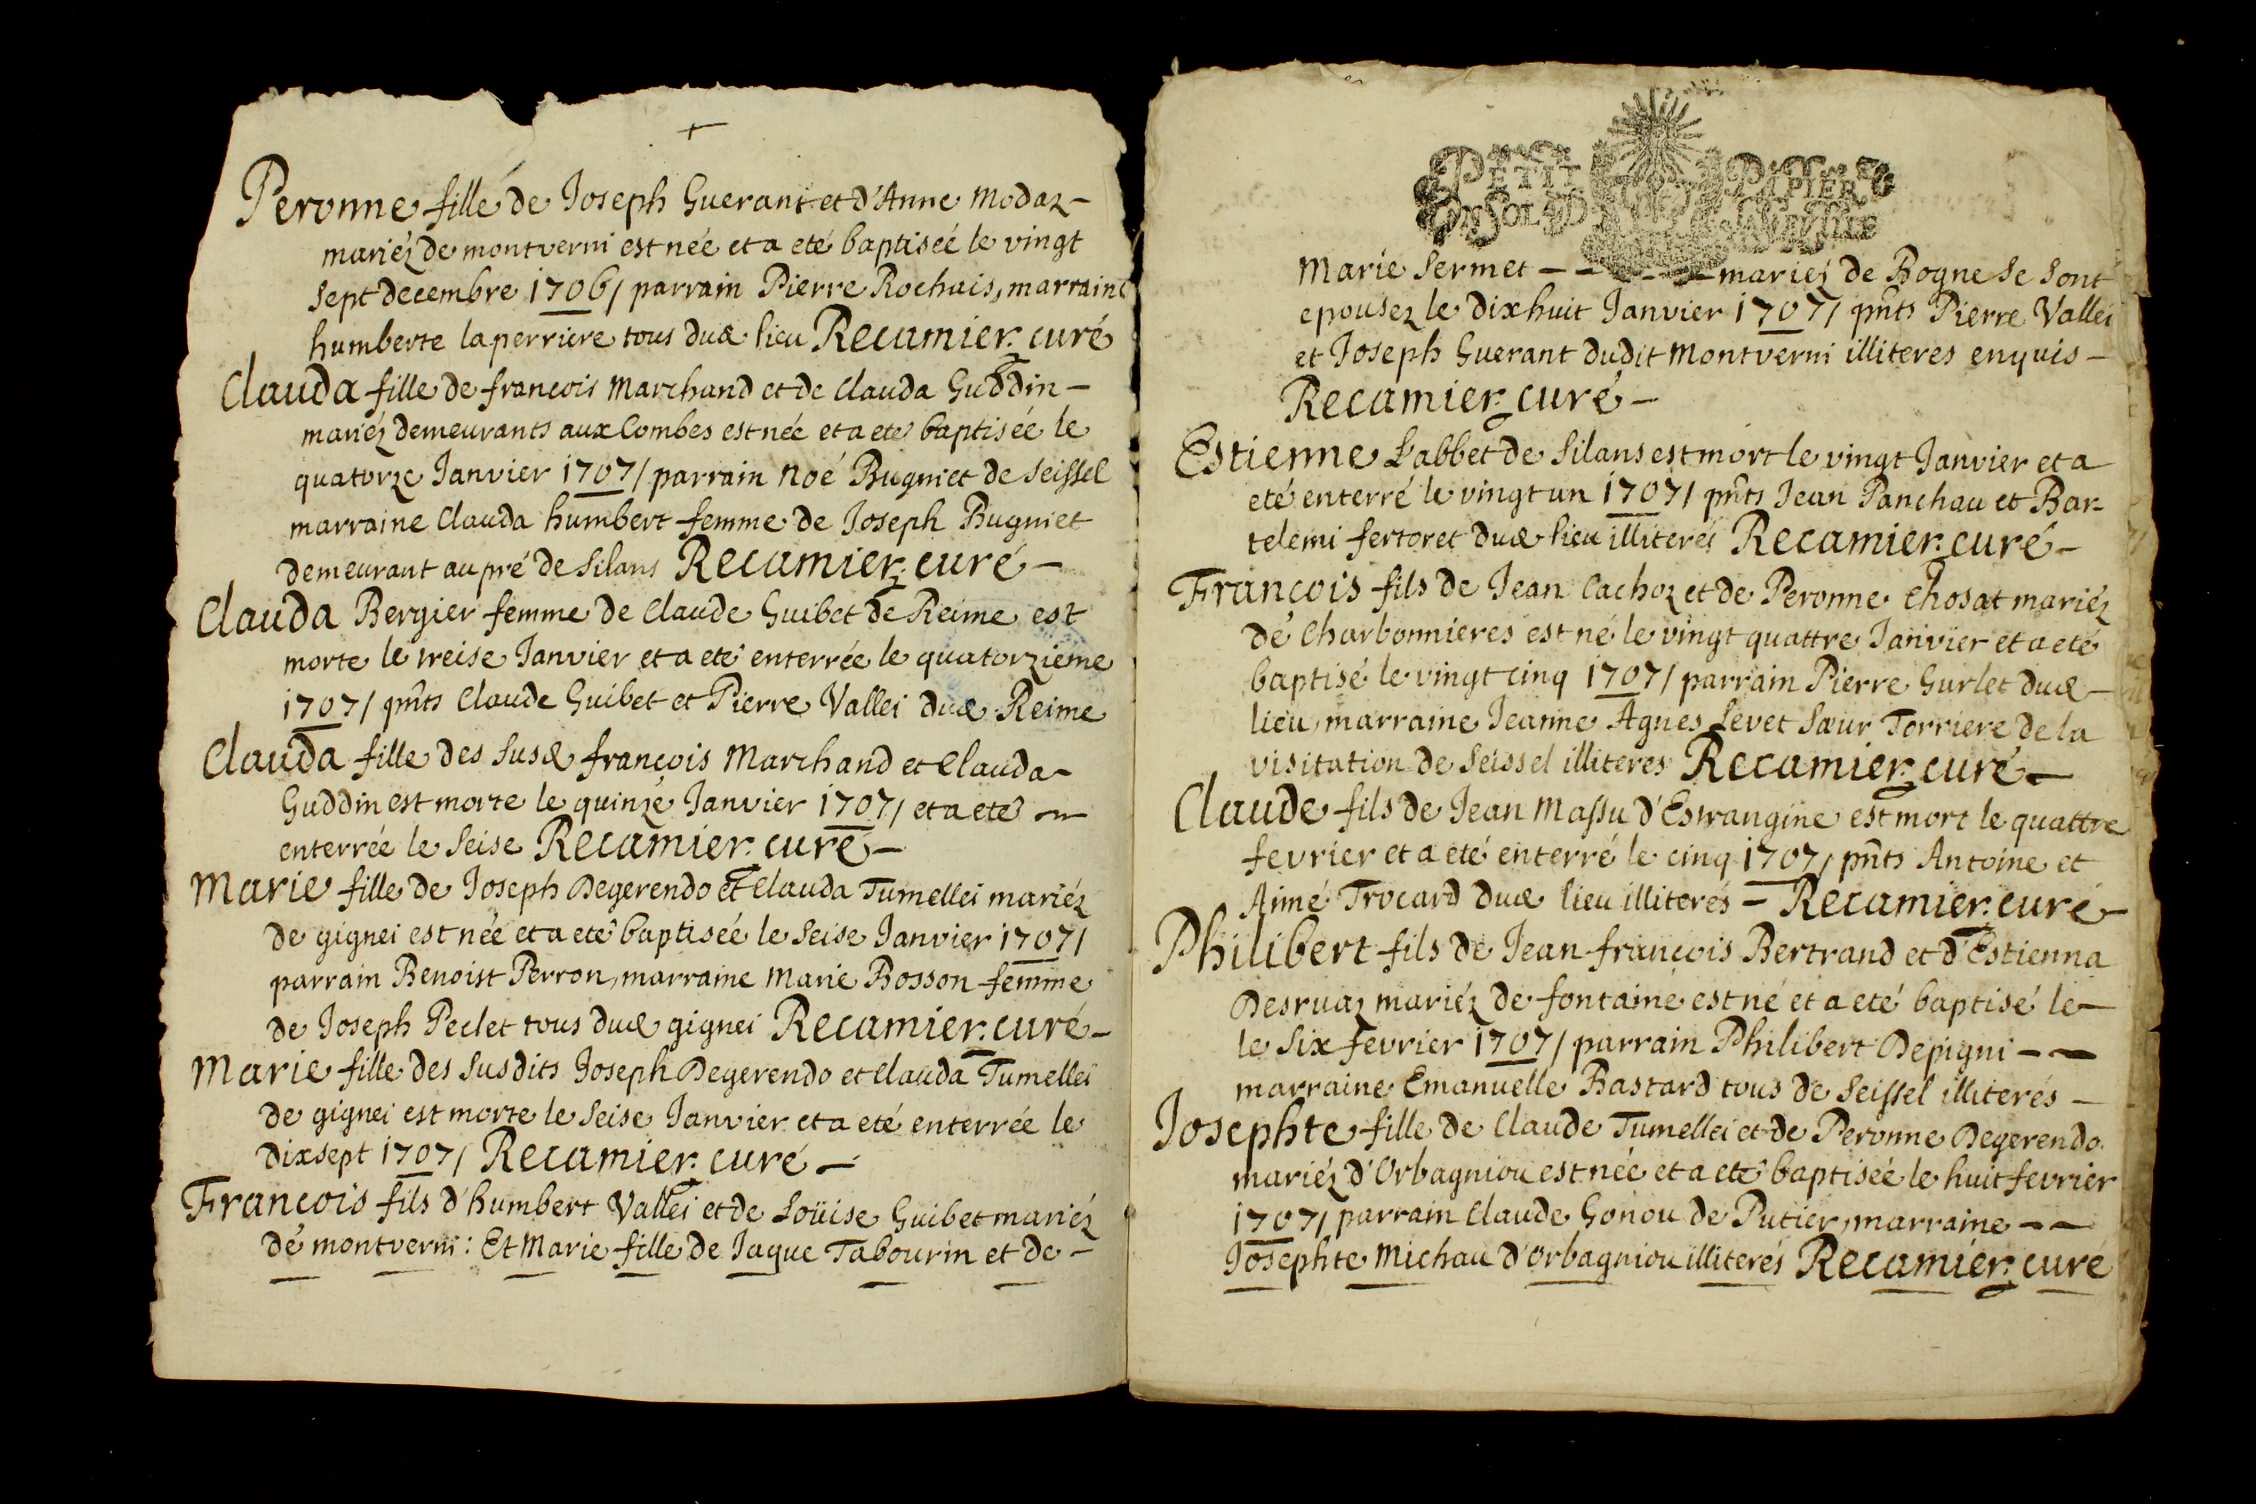 Peronne fille de Joseph Guerant et d'Anne Modaz -
mariéz de montverni est née et a eté baptiseé le vingt
sept decembre 1706/ parrain Pierre Rochais, marraine
humberte laperriere tous dud lieu Recamier. curé
Clauda fille de francois Marchand et de Clauda Guddin -
mariéz demeurants aux Combes est née et a eté baptisée le
quatorze Janvier 1707/ parrain Noé Bugniet de Seissel
marraine Clauda humbert femme de Joseph Bugniet
demeurant au pré de Silans Recamier. curé -
Clauda Bergier femme de Claude Guibet de Reime est
morte le treise Janvier et a eté enterrée le quatorzieme
1707/ pnts Claude Guibet et Pierre Vallei dud Reime
Clauda fille des susd françois Marchand et Clauda -
Guddin est morte le quinze Janvier 1707/ et a eté ~
enterrée le Seise Recamier. curé -
Marie fille de Joseph Degerendo et Clauda Tumellei mariéz
de gignei est née et a eté baptiseé le Seise Janvier 1707/
parrain Benoist Perron, marraine Marie Bosson femme
de Joseph Peclet tous dud gignei Recamier. curé -
Marie fille des susdits Joseph Degerendo et Clauda Tumellei
de gignei est morte le Seise Janvier et a eté enterrée le
dixsept 1707/ Recamier. curé -
Francois fils d'humbert Vallei et de Loüise Guibet mariéz
de montverni: Et Marie fille de Jaque Tabourin et de -
PETIT PAPIER
Marie Sermet - - - - - mariéz de Bogne se sont
epousez le dixhuit Janvier 1707/ pnts Pierre Vallei
et Joseph Guerant dudit Montverni illiteres enquis -
Recamier. curé -
Estienne Labbet de Silans est mort le vingt Janvier et a
eté enterré le vingt un 1707/ pnts Jean Panchau et Bar-
telemi fertoret dud lieu illiterés Recamier. curé -
Francois fils de Jean Cachoz et de Peronne Chosat mariéz
de Charbonnieres est né le vingt quattre Janvier et a eté
baptisé le vingt cinq 1707/ parrain Pierre Gurlet dud -
lieu, marraine Jeanne Agnes Levet Sœur Torriere de la
visitation de Seissel illiteres Recamier. curé -
Claude fils de Jean Massu d'Estrangine est mort le quattre
fevrier et a eté enterré le cinq 1707/ pnts Antoine et
Aimé Trocard dud lieu illiterés - Recamier. curé -
Philibert fils de Jean françois Bertrand et d'Estienna
Desruaz mariéz de fontaine est né et a eté baptisé le -
le six fevrier 1707/ parrain Philibert Depigni - -
marraine Emanuelle Bastard tous de Seissel illiterés -
Josephte fille de Claude Tumellei et de Peronne Degerendo
mariéz d'Orbagniou est née et a eté baptisée le huit fevrier
1707/ parrain Claude Gonou de Putier, marraine - -
Josephte Michau d'Orbagniou illiterés Recamier. curé